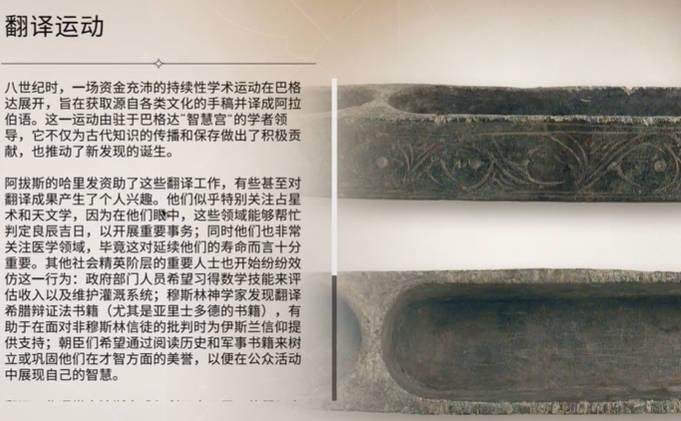 翻译运动
八世纪时，一场资金充沛的持续性学术运动在巴格
达展开，旨在获取源自各类文化的手稿并译成阿拉
伯语。这一运动由驻于巴格达¨智慧宫¨的学者领
导，它不仅为古代知识的传播和保存做出了积极贡
献，也推动了新发现的诞生。
阿拔斯的哈里发资助了这些翻译工作，有些甚至对
翻译成果产生了个人兴趣。他们似乎特别关注占星
术和天文学，因为在他们眼中，这些领域能够帮忙
判定良辰吉日，以开展重要事务；同时他们也非常
关注医学领域，毕竟这对延续他们的寿命而言十分
重要。其他社会精英阶层的重要人士也开始纷纷效
仿这一行为：政府部门人员希望习得数学技能来评
估收入以及维护灌溉系统；穆斯林神学家发现翻译
希腊辩证法书籍（尤其是亚里士多德的书籍），有
助于在面对非穆斯林信徒的批判时为伊斯兰信仰提
供支持；朝臣们希望通过阅读历史和军事书籍来树
立或巩固他们在才智方面的美誉，以便在公众活动
中展现自己的智慧。